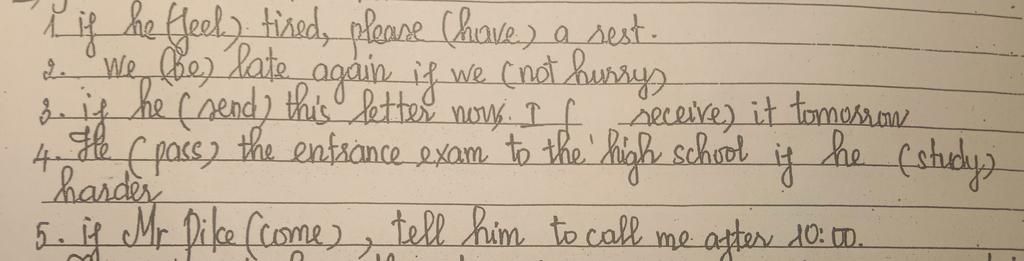 1. if he (feel). tired, please (have) a rest.
2. We (be) late again if we (not hurry)
3. if he (send) this letter now. I ( receive) it tomorrow
4. He (pass) the entrance exam to the high school if he (study)
harder
5. if Mr Dike (come), tell him to call me after 10:00.